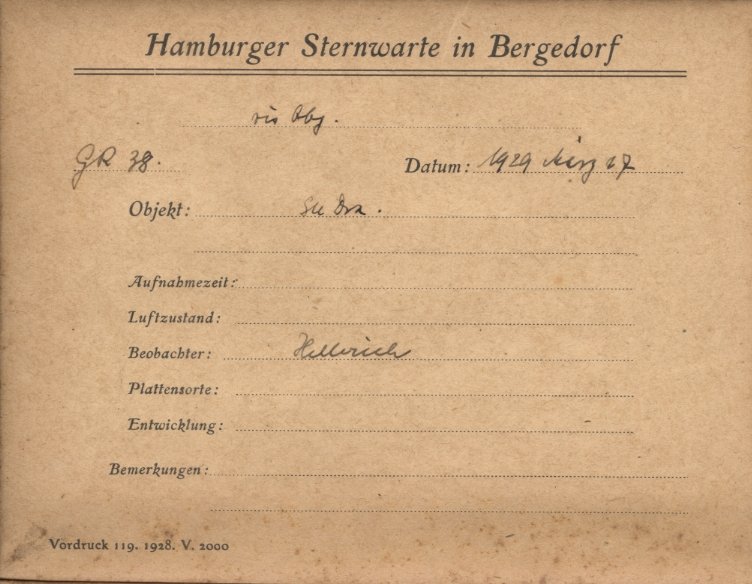 Hamburger Sternwarte in Bergedorf
vis Obj.
GR 38. Datum: 1929 März 17
Objekt: SU Dra.
Aufnahmezeit:
Luftzustand:
Beobachter: Hellerich
Plattensorte:
Entwicklung:
Bemerkungen:
Vordruck 119. 1928. V. 2000